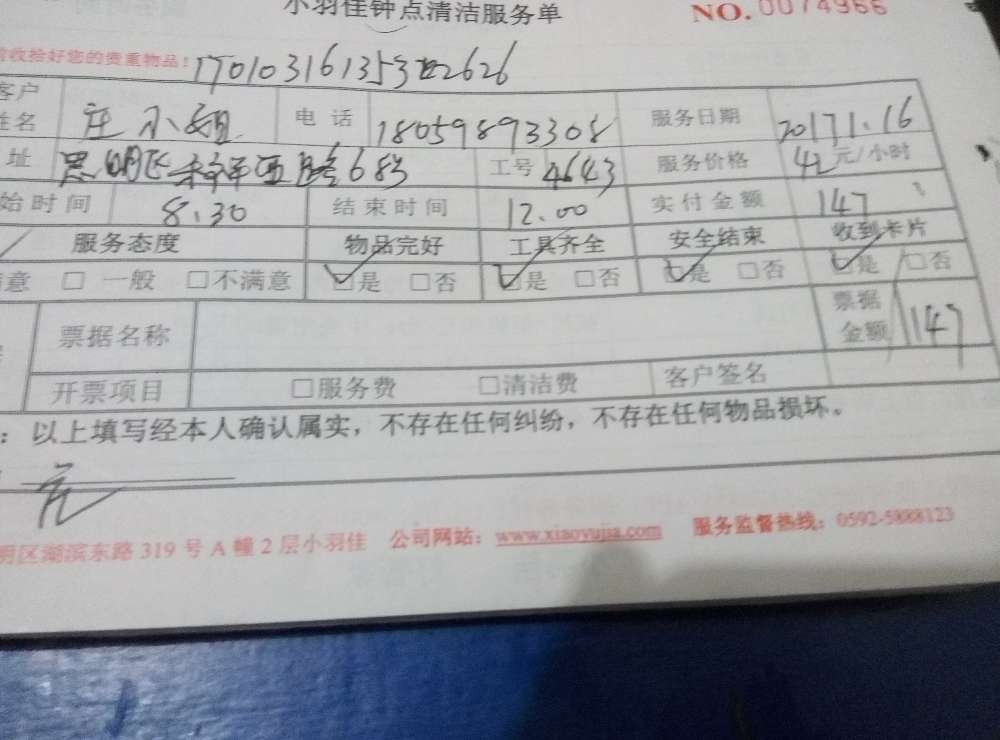 小羽佳钟点清洁服务单 NO.0074966
收拾好您的贵重物品! 170103161353 2626
客户姓名 庄小姐 电话 18059893308 服务日期 2017.1.16
址 思明区 路683 工号 4643 服务价格 42元/小时
始时间 8.30 结束时间 12.00 实付金额 147
服务态度 物品完好 工具齐全 安全结束 收到卡片
意 □ 一般 □不满意 ☑是 □否 ☑是 □否 ☑是 □否 ☑是 □否
票据名称 票据金额 147
开票项目 □服务费 □清洁费 客户签名
: 以上填写经本人确认属实，不存在任何纠纷，不存在任何物品损坏。
明区湖滨东路 319 号 A 幢 2 层小羽佳 公司网站: www.xiaoyujia.com 服务监督热线: 0592-5888123